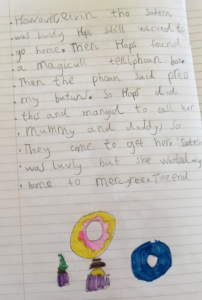 However, Even tho Satern
was luvly Hops still wanted to
go home. Then Hops found
a magicull teliphoan box.
Then the phoan said pres
my butuns. So Hops did
this and manijd to call her
Mummy and daddy so
They come to get her. Satern
was luvly but she wanted
home to